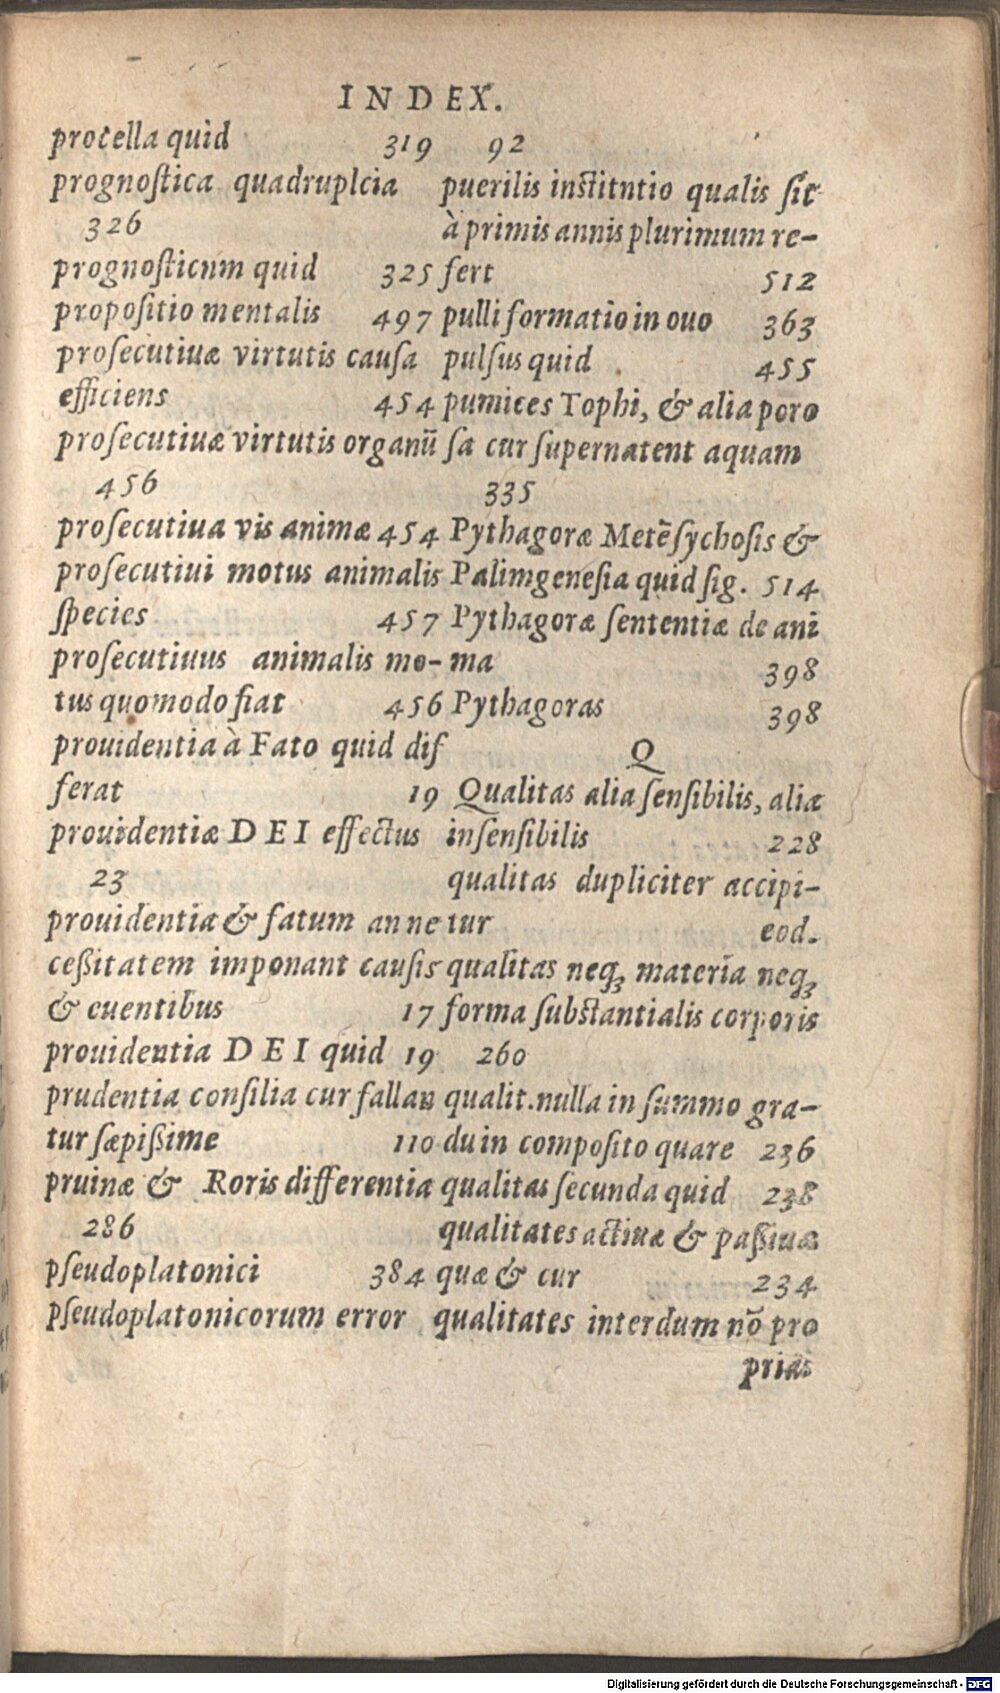 INDEX.
procella quid 319
prognoſtica quadruplcia
326
prognoſticum quid 325
propoſitio mentalis 497
proſecutiuæ virtutis cauſa
efficiens 454
proſecutiuæ virtutis organū
456
proſecutiua vis animæ 454
proſecutiui motus animalis
ſpecies 457
proſecutiuus animalis mo-
tus quomodo fiat 456
prouidentia à Fato quid dif
ferat 19
prouidentiæ DEI effectus
23
prouidentia & fatum an ne
ceßitatem imponant cauſis
& euentibus 17
prouidentia DEI quid 19
prudentia conſilia cur fallan
tur ſæpißime 110
pruinæ & Roris differentia
286
pſeudoplatonici 384
pſeudoplatonicorum error
92
puerilis inſtitntio qualis ſit
à primis annis plurimum re-
fert 512
pulli formatio in ouo 363
pulſus quid 455
pumices Tophi, & alia poro
ſa cur ſupernatent aquam
335
Pythagoræ Metēſychoſis &
Palimgeneſia quid ſig. 514
Pythagoræ ſententiæ de ani
ma 398
Pythagoras 398
Q
Qualitas alia ſenſibilis, aliæ
inſenſibilis 228
qualitas dupliciter accipi-
tur eod.
qualitas neqꝫ materia neqꝫ
forma ſubſtantialis corporis
260
qualit. nulla in ſummo gra-
du in compoſito quare 236
qualitas ſecunda quid 238
qualitates actiuæ & paßiuæ
quæ & cur 234
qualitates interdum nō pro
prias
Digitalisierung gefördert durch die Deutsche Forschungsgemeinschaft - DFG